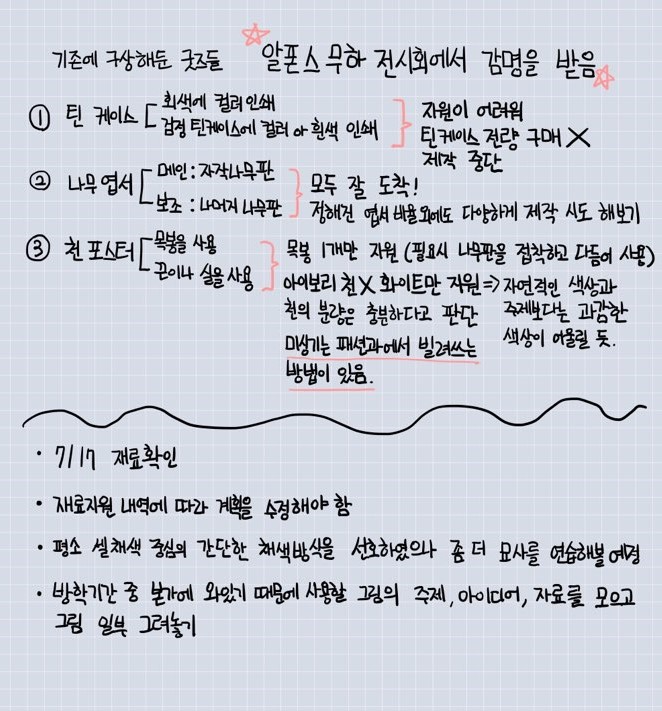 기존에 구상해둔 굿즈들 ☆알폰스 무하 전시회에서 감명을 받음☆
① 틴 케이스 [ 흰색에 컬러인쇄
검정 틴케이스에 컬러 or 흰색 인쇄
} 자원이 어려워
틴케이스 전량 구매 X
제작 중단
② 나무 엽서 [ 메인 : 자작나무판
보조 : 나머지 나무판
} 모두 잘 도착!
정해진 엽서 비율 외에도 다양하게 제작 시도 해보기
③ 천 포스터 [ 목봉을 사용
끈이나 실을 사용
} 목봉 1개만 지원 (필요시 나무판을 접착하고 다듬어 사용)
아이보리 천X 화이트만 지원 => 자연적인 색상과
천의 분량은 충분하다고 판단 주제보다는 과감한
미싱기는 패션과에서 빌려쓰는 색상이 어울릴 듯.
방법이 있음.
• 7/17 재료확인
• 재료지원 내역에 따라 계획을 수정해야 함
• 평소 셀채색 중심의 간단한 채색방식을 선호하였으나 좀 더 묘사를 연습해볼 예정
• 방학기간 중 본가에 와있기 때문에 사용할 그림의 주제, 아이디어, 자료를 모으고
그림 일부 그려놓기